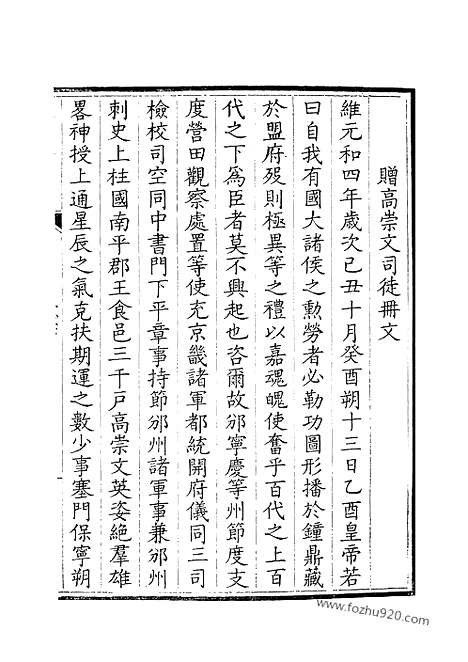 贈高崇文司徒冊文
維元和四年歲次己丑十月癸酉朔十三日乙酉皇帝若
曰自我有國大諸侯之勲勞者必勒功圖形播於鐘鼎藏
於盟府歿則極異等之禮以嘉魂魄使奮乎百代之上百
代之下爲臣者莫不興起也咨爾故邠寧慶等州節度支
度營田觀察處置等使充京畿諸軍都統開府儀同三司
檢校司空同中書門下平章事持節邠州諸軍事兼邠州
刺史上柱國南平郡王食邑三千戸高崇文英姿絶羣雄
畧神授上通星辰之氣克扶期運之數少事塞門保寧朔
www.fozhu920.com